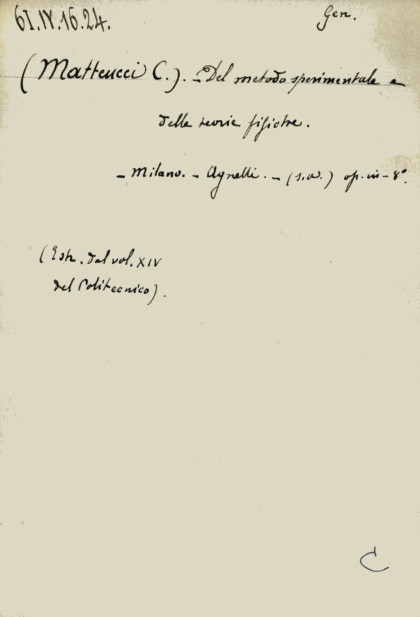 61.IV.16.24.
Gen.
(Matteucci C.). - Del metodo sperimentale e
delle teorie fisiche.
- Milano. - Agnelli. - (s.a.) op. in - 8°.
(Estr. dal vol. XIV
del Politecnico).
C